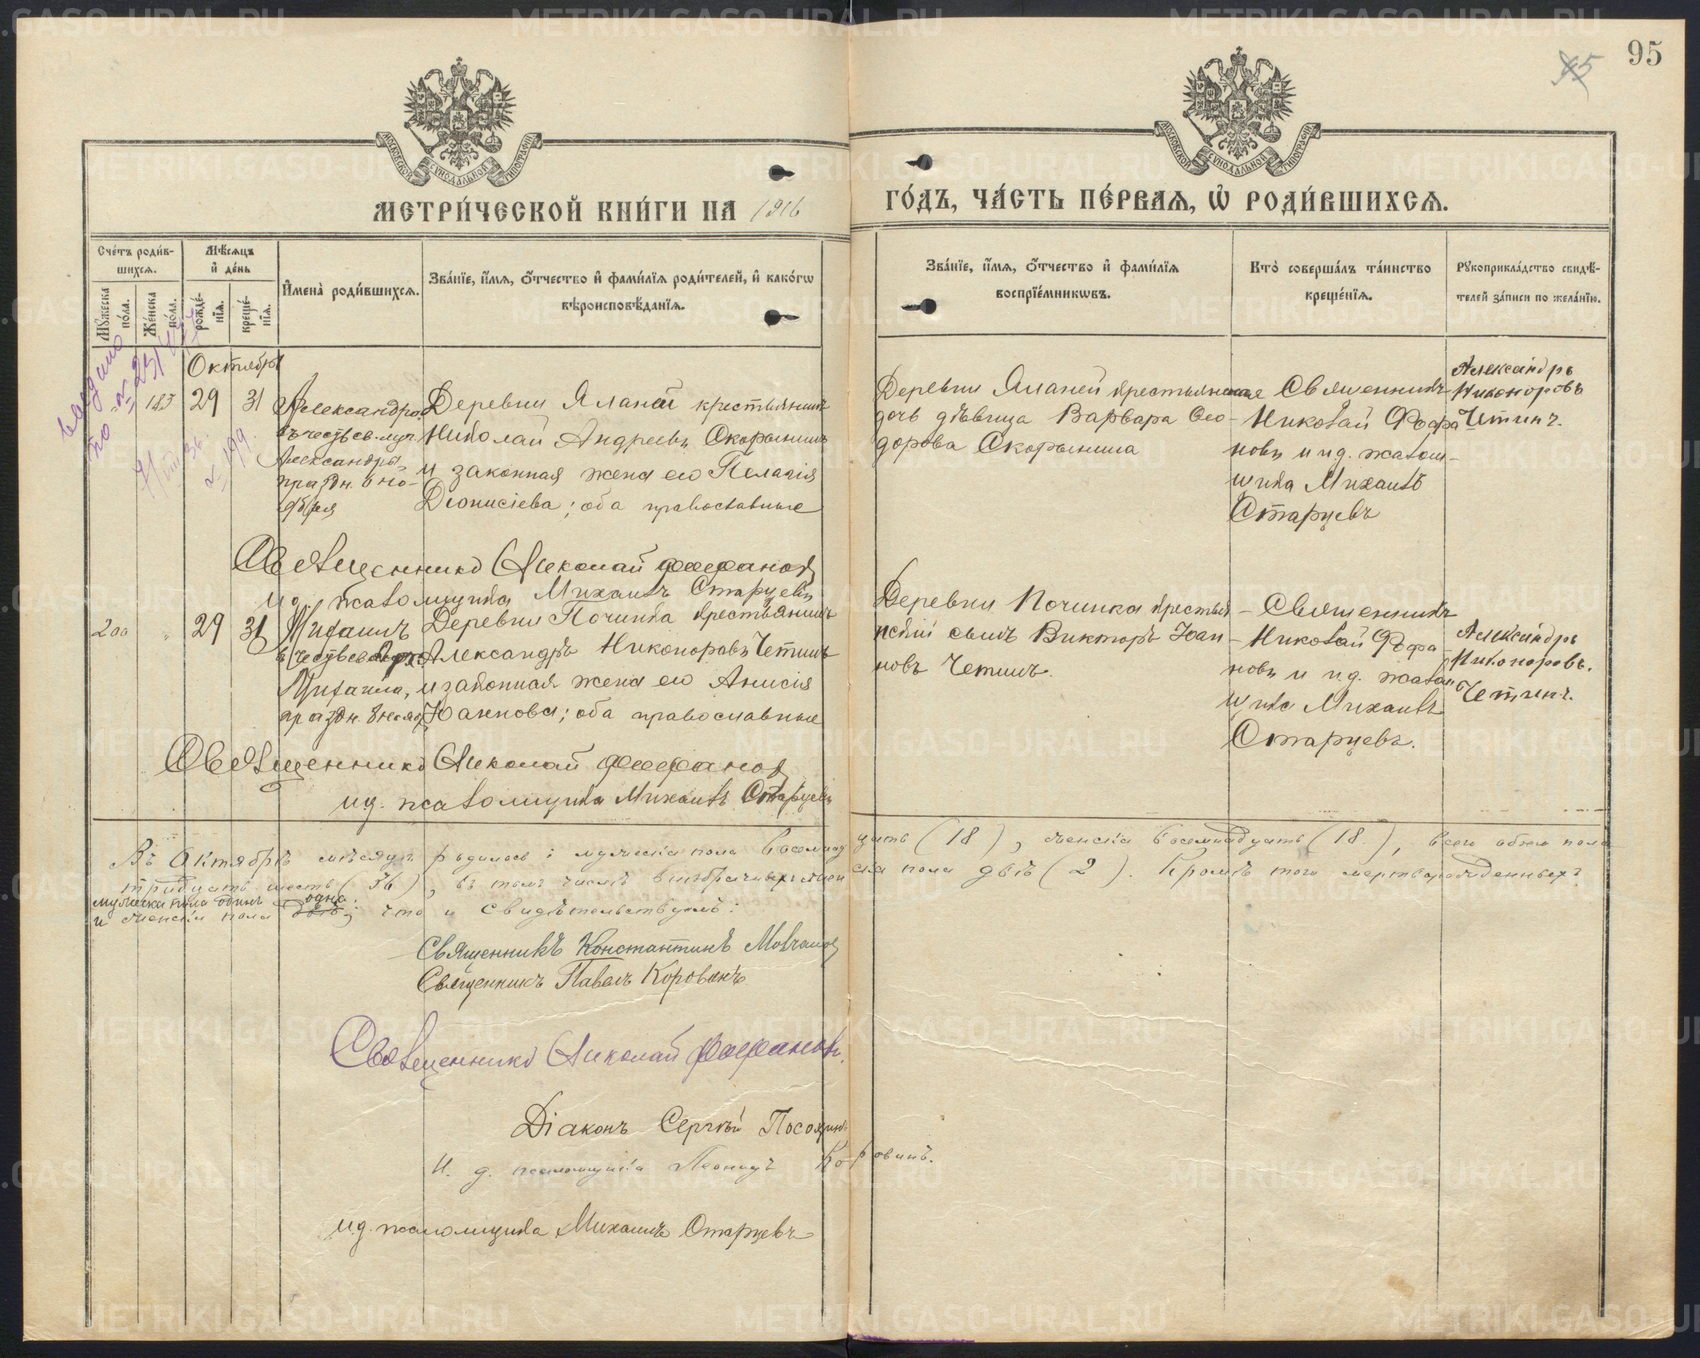 95
МЕТРИ́ЧЕСКОЙ КНИ́ГИ НА 1916
ГО́ДЪ, ЧА́СТЬ ПЕ́РВАЯ, Ѡ РОДИ́ВШИХСЯ.
МОСКОВСКОЙ СѴНОДАЛЬНОЙ ТИПОГРАФІИ
МОСКОВСКОЙ СѴНОДАЛЬНОЙ ТИПОГРАФІИ
Сче́тъ роди́в-
шихся.
Мꙋ́жеска по́ла.
Же́нска по́ла.
Мѣ́сяцъ
и҆ де́нь
рожде́-
нїя.
креще́-
нїя.
И҆мена̀ роди́вшихся.
Зва́нїе, и҆́мя, ѻ҆́тчество и҆ фами́лїя роди́телей, и҆ како́гѡ
вѣроисповѣ́данїя.
Зва́нїе, и҆́мя, ѻ҆́тчество и҆ фами́лїя
воспрїе́мникѡвъ.
Кто̀ соверша́лъ та́инство
креще́нїя.
Рꙋкоприкла́дство свидѣ́-
телей за́писи по жела́нїю.
Октября
183 29 31
Александра
въ честь св. муч.
Александры
праздн. 6 но-
ября
Деревни Яланей крестьянинъ
Николай Андреевъ Скорынинъ
и законная жена его Пелагія
Діонисіева; оба православные
Деревни Яланей крестьянская
дочь дѣвица Варвара Ѳео-
дорова Скорынина
Священникъ
Николай Фофа
новъ и и.д. псалом-
щика Михаилъ
Старцевъ
Александръ
Никоноровъ
Четинъ.
Священникъ Николай Фофановъ
и.д. псаломщика Михаилъ Старцевъ
200 " 29 31
Михаилъ
Михаила,
праздн. 8 нояб.
Деревни Починка крестьянинъ
Александръ Никоноровъ Четинъ
и законная жена его Анисія
Іоаннова; оба православные
Деревни Починка крестья-
нскій сынъ Викторъ Іоан-
новъ Четинъ.
Священникъ
Николай Фофа
новъ и и.д. псалом
щика Михаилъ
Старцевъ.
Александръ
Никоноровъ.
Четинъ.
Священникъ Николай Фофановъ
и.д. псаломщика Михаилъ Старцевъ
Въ Октябрѣ мѣсяцѣ родилось: мужеска пола восемнадцать (18), женска восемнадцать (18), всего обоего пола
тридцать шесть (36), въ томъ числѣ внѣбрачныхъ женска пола двѣ (2). Кромѣ того мертворожденныхъ:
мужеска пола одинъ
и женска пола одна; что и свидѣтельствуемъ:
Священникъ Константинъ Молчановъ
Священникъ Павелъ Коровинъ
Священникъ Николай Фофановъ.
Діаконъ Сергѣй
И. д. псаломщика Леонидъ Коровинъ.
и.д. псаломщика Михаилъ Старцевъ
METRIKI.GASO-URAL.RU